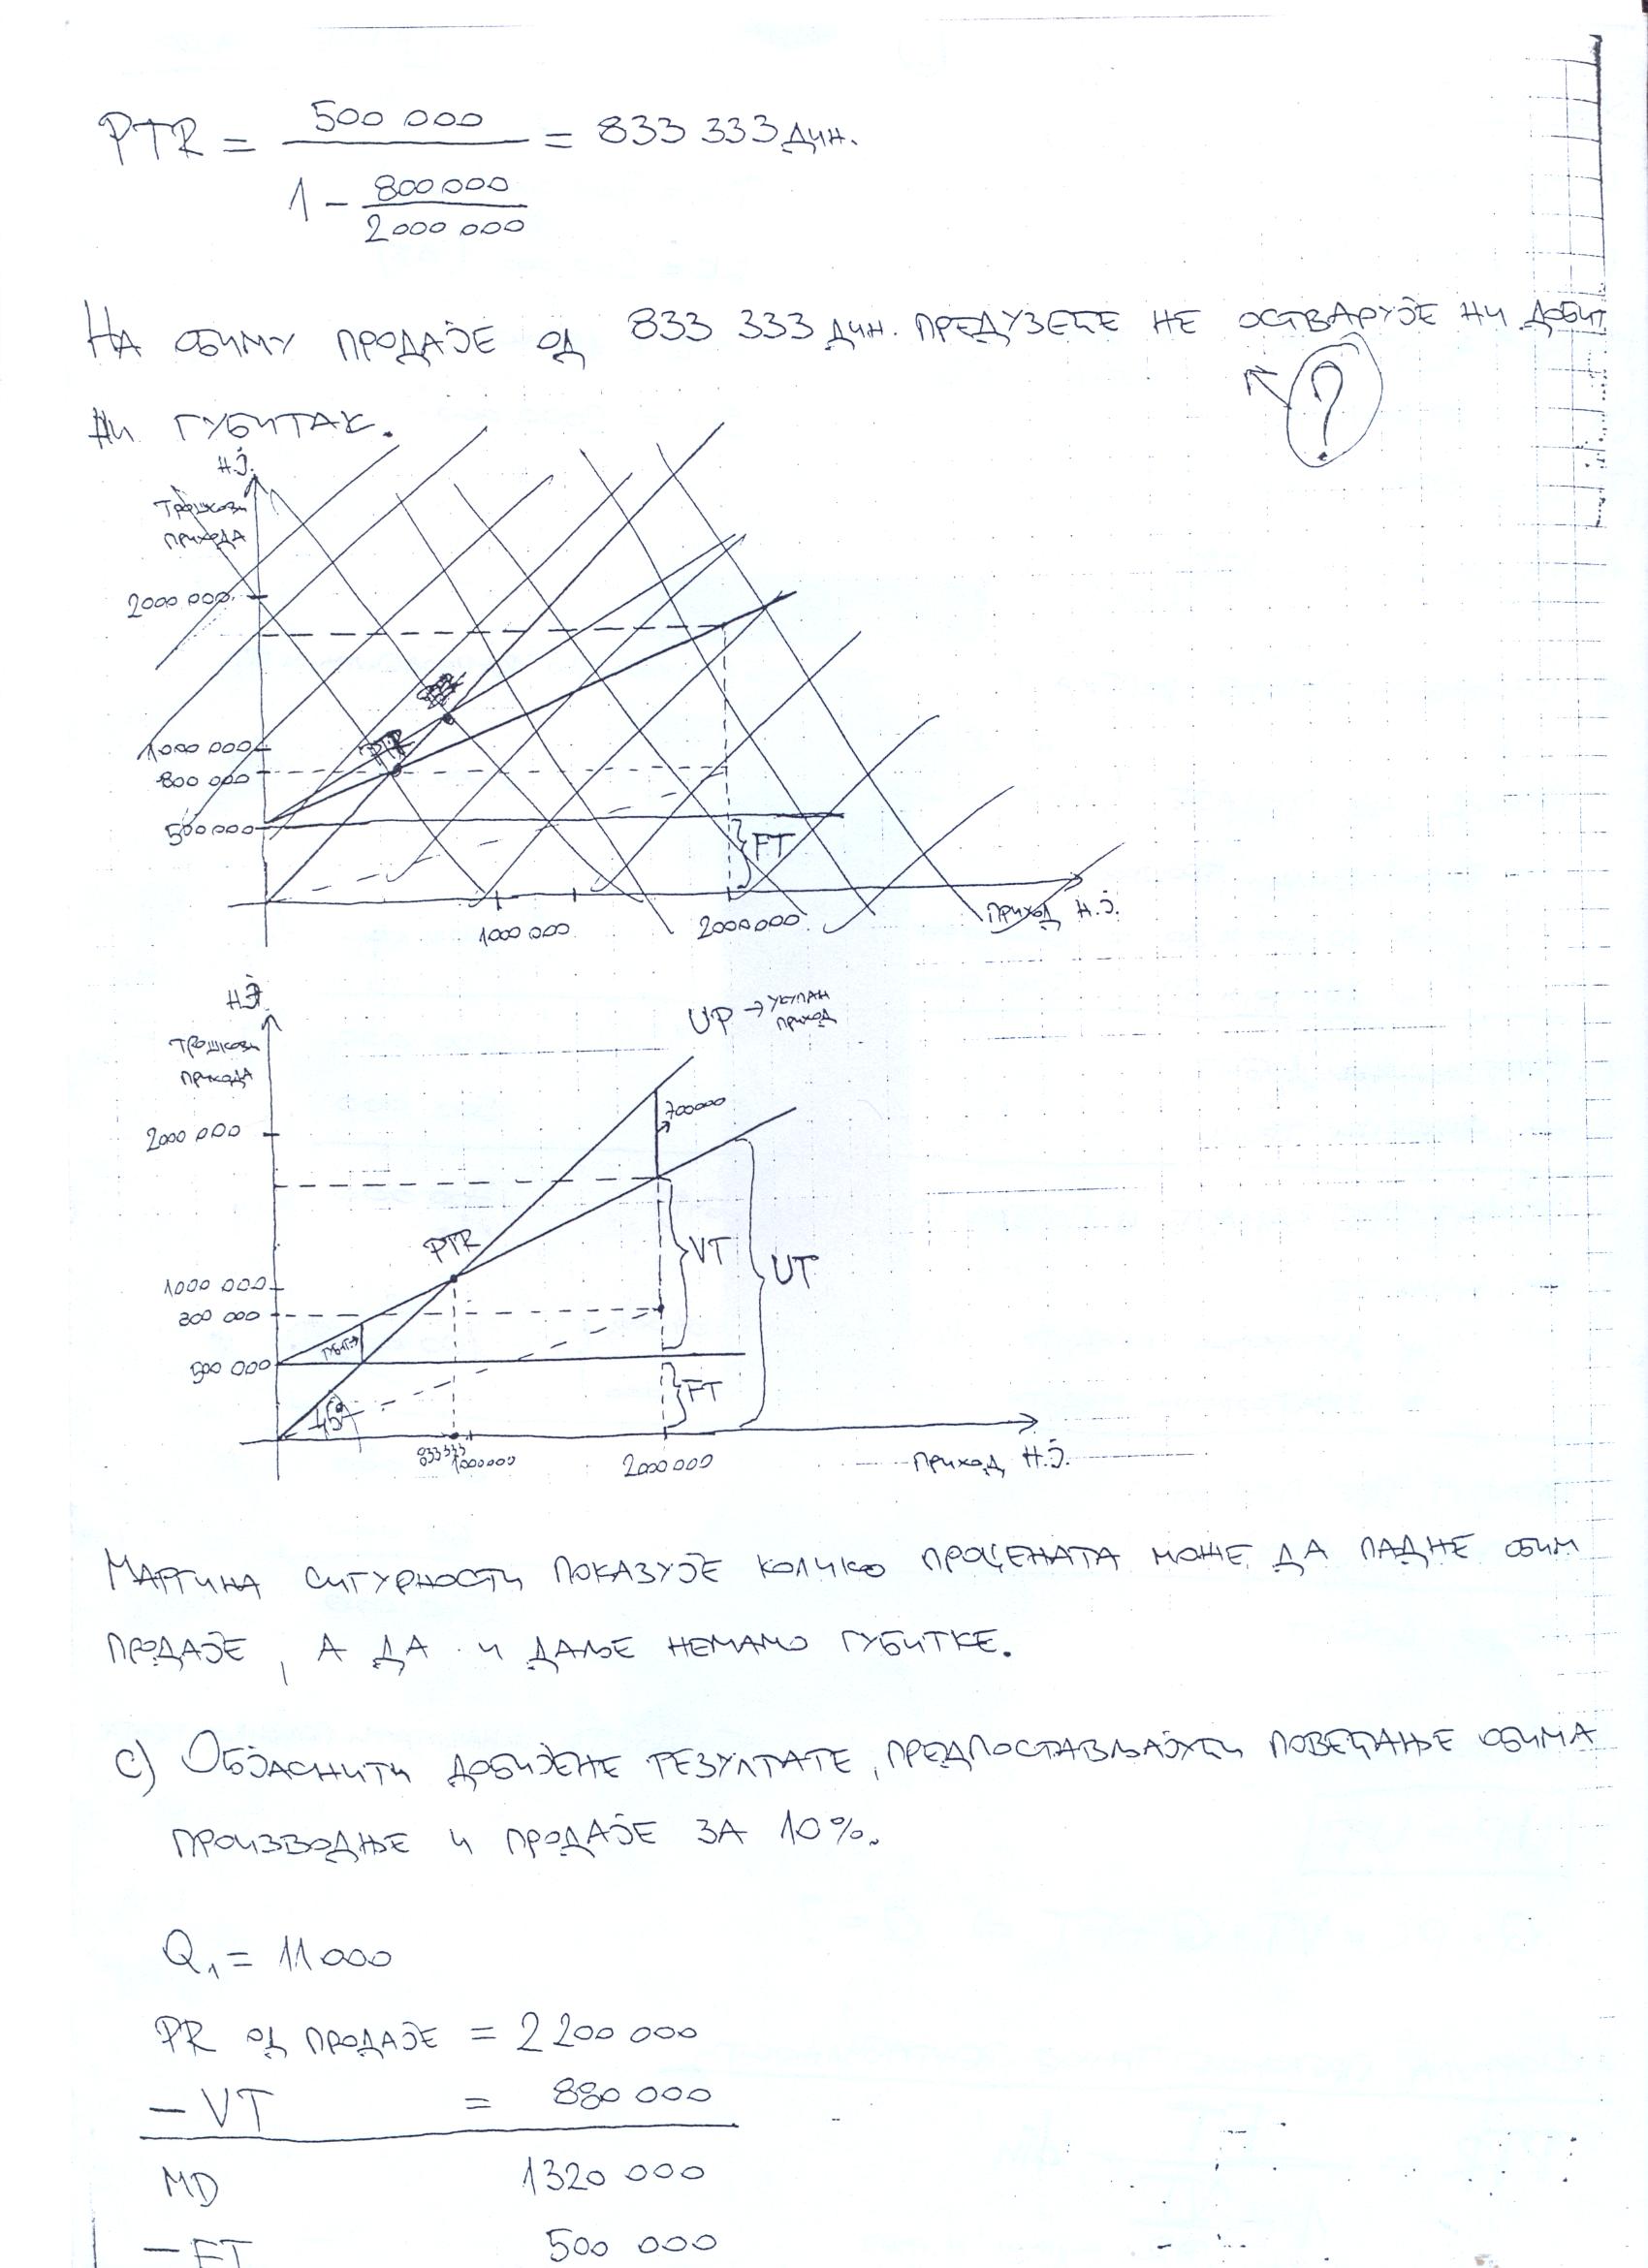 PTR = 500 000 / (1 - 800 000 / 2 000 000) = 833 333 дин.
На обиму продаје од 833 333 дин. предузеће не остварује ни добит
ни губитак.
?
Н.Ј.
Трошкови
прихода
2000 000
1000 000
800 000
500 000
PTR
FT
1000 000
2000000
Приход Н.Ј.
Н.Ј.
Трошкови
прихода
UP → укупан
приход
700000
2000 000
PTR
VT
UT
1000 000
800 000
500 000
FT
45°
833 333
1000000
2000000
Приход Н.Ј.
Маргина сигурности показује колико процената може да падне обим
продаје, а да и даље немамо губитке.
C) Објаснити добијене резултате, предпостављајући повећање обима
производње и продаје за 10%.
Q₁ = 11 000
PR од продаје = 2 200 000
- VT = 880 000
MD 1320 000
- FT 500 000